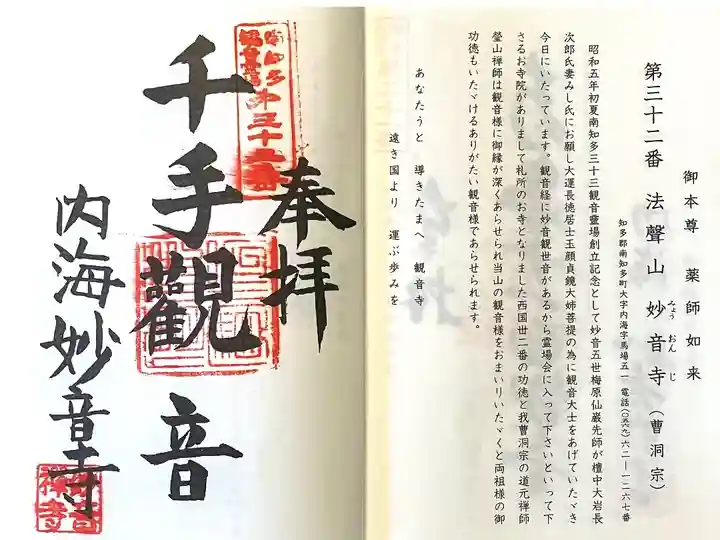 御本尊 薬師如来
第三十二番 法聲山 妙音寺（曹洞宗）
みょう おん じ
知多郡南知多町大字内海字馬場五一 電話（〇五六九）六二―一二六七番
昭和五年初夏南知多三十三観音霊場創立記念として妙音五世梅原仙巌先師が檀中大岩長
次郎氏妻みし氏にお願し大運長徳居士玉顔貞鏡大姉菩提の為に観音大士をあげていたゞき
今日にいたっています。観音経に妙音観世音があるから霊場会に入って下さいといって下
さるお寺院がありまして札所のお寺となりました西国丗二番の功徳と我曹洞宗の道元禅師
瑩山禅師は観音様に御縁が深くあらせられ当山の観音様をおまいりいたゞくと両祖様の御
功徳もいたゞけるありがたい観音様であらせられます。
あなたうと 導きたまへ 観音寺
遠き国より 運ぶ歩みを
奉拝
南知多
観音霊場
第三十二番
千手觀音
内海妙音寺
妙音
禅寺